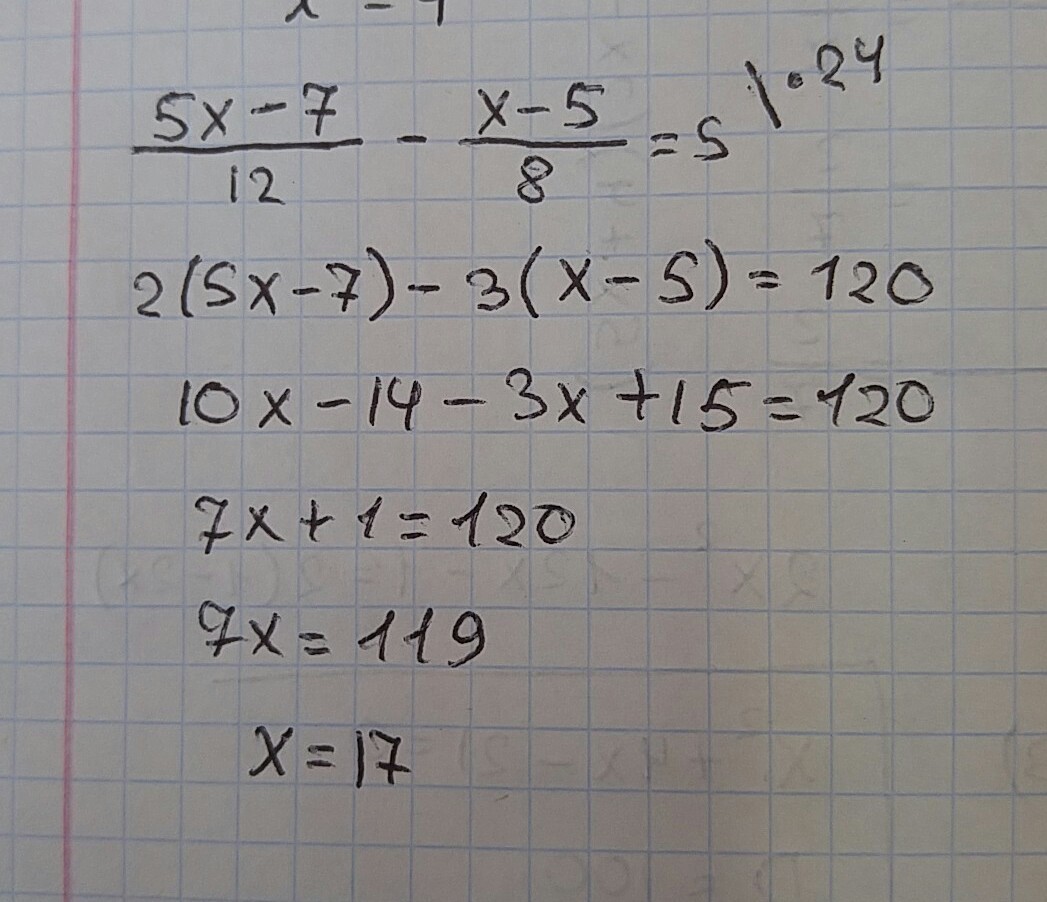 (5x-7)/12 - (x-5)/8 = 5 \ •24
2(5x-7)- 3(x-5)= 120
10x-14-3x+15=120
7x+1=120
7x=119
x=17